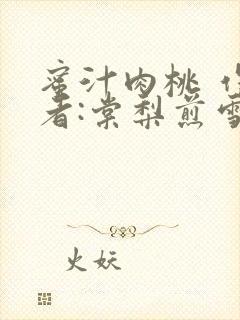 蜜汁肉桃
者:棠梨煎雪
火妖